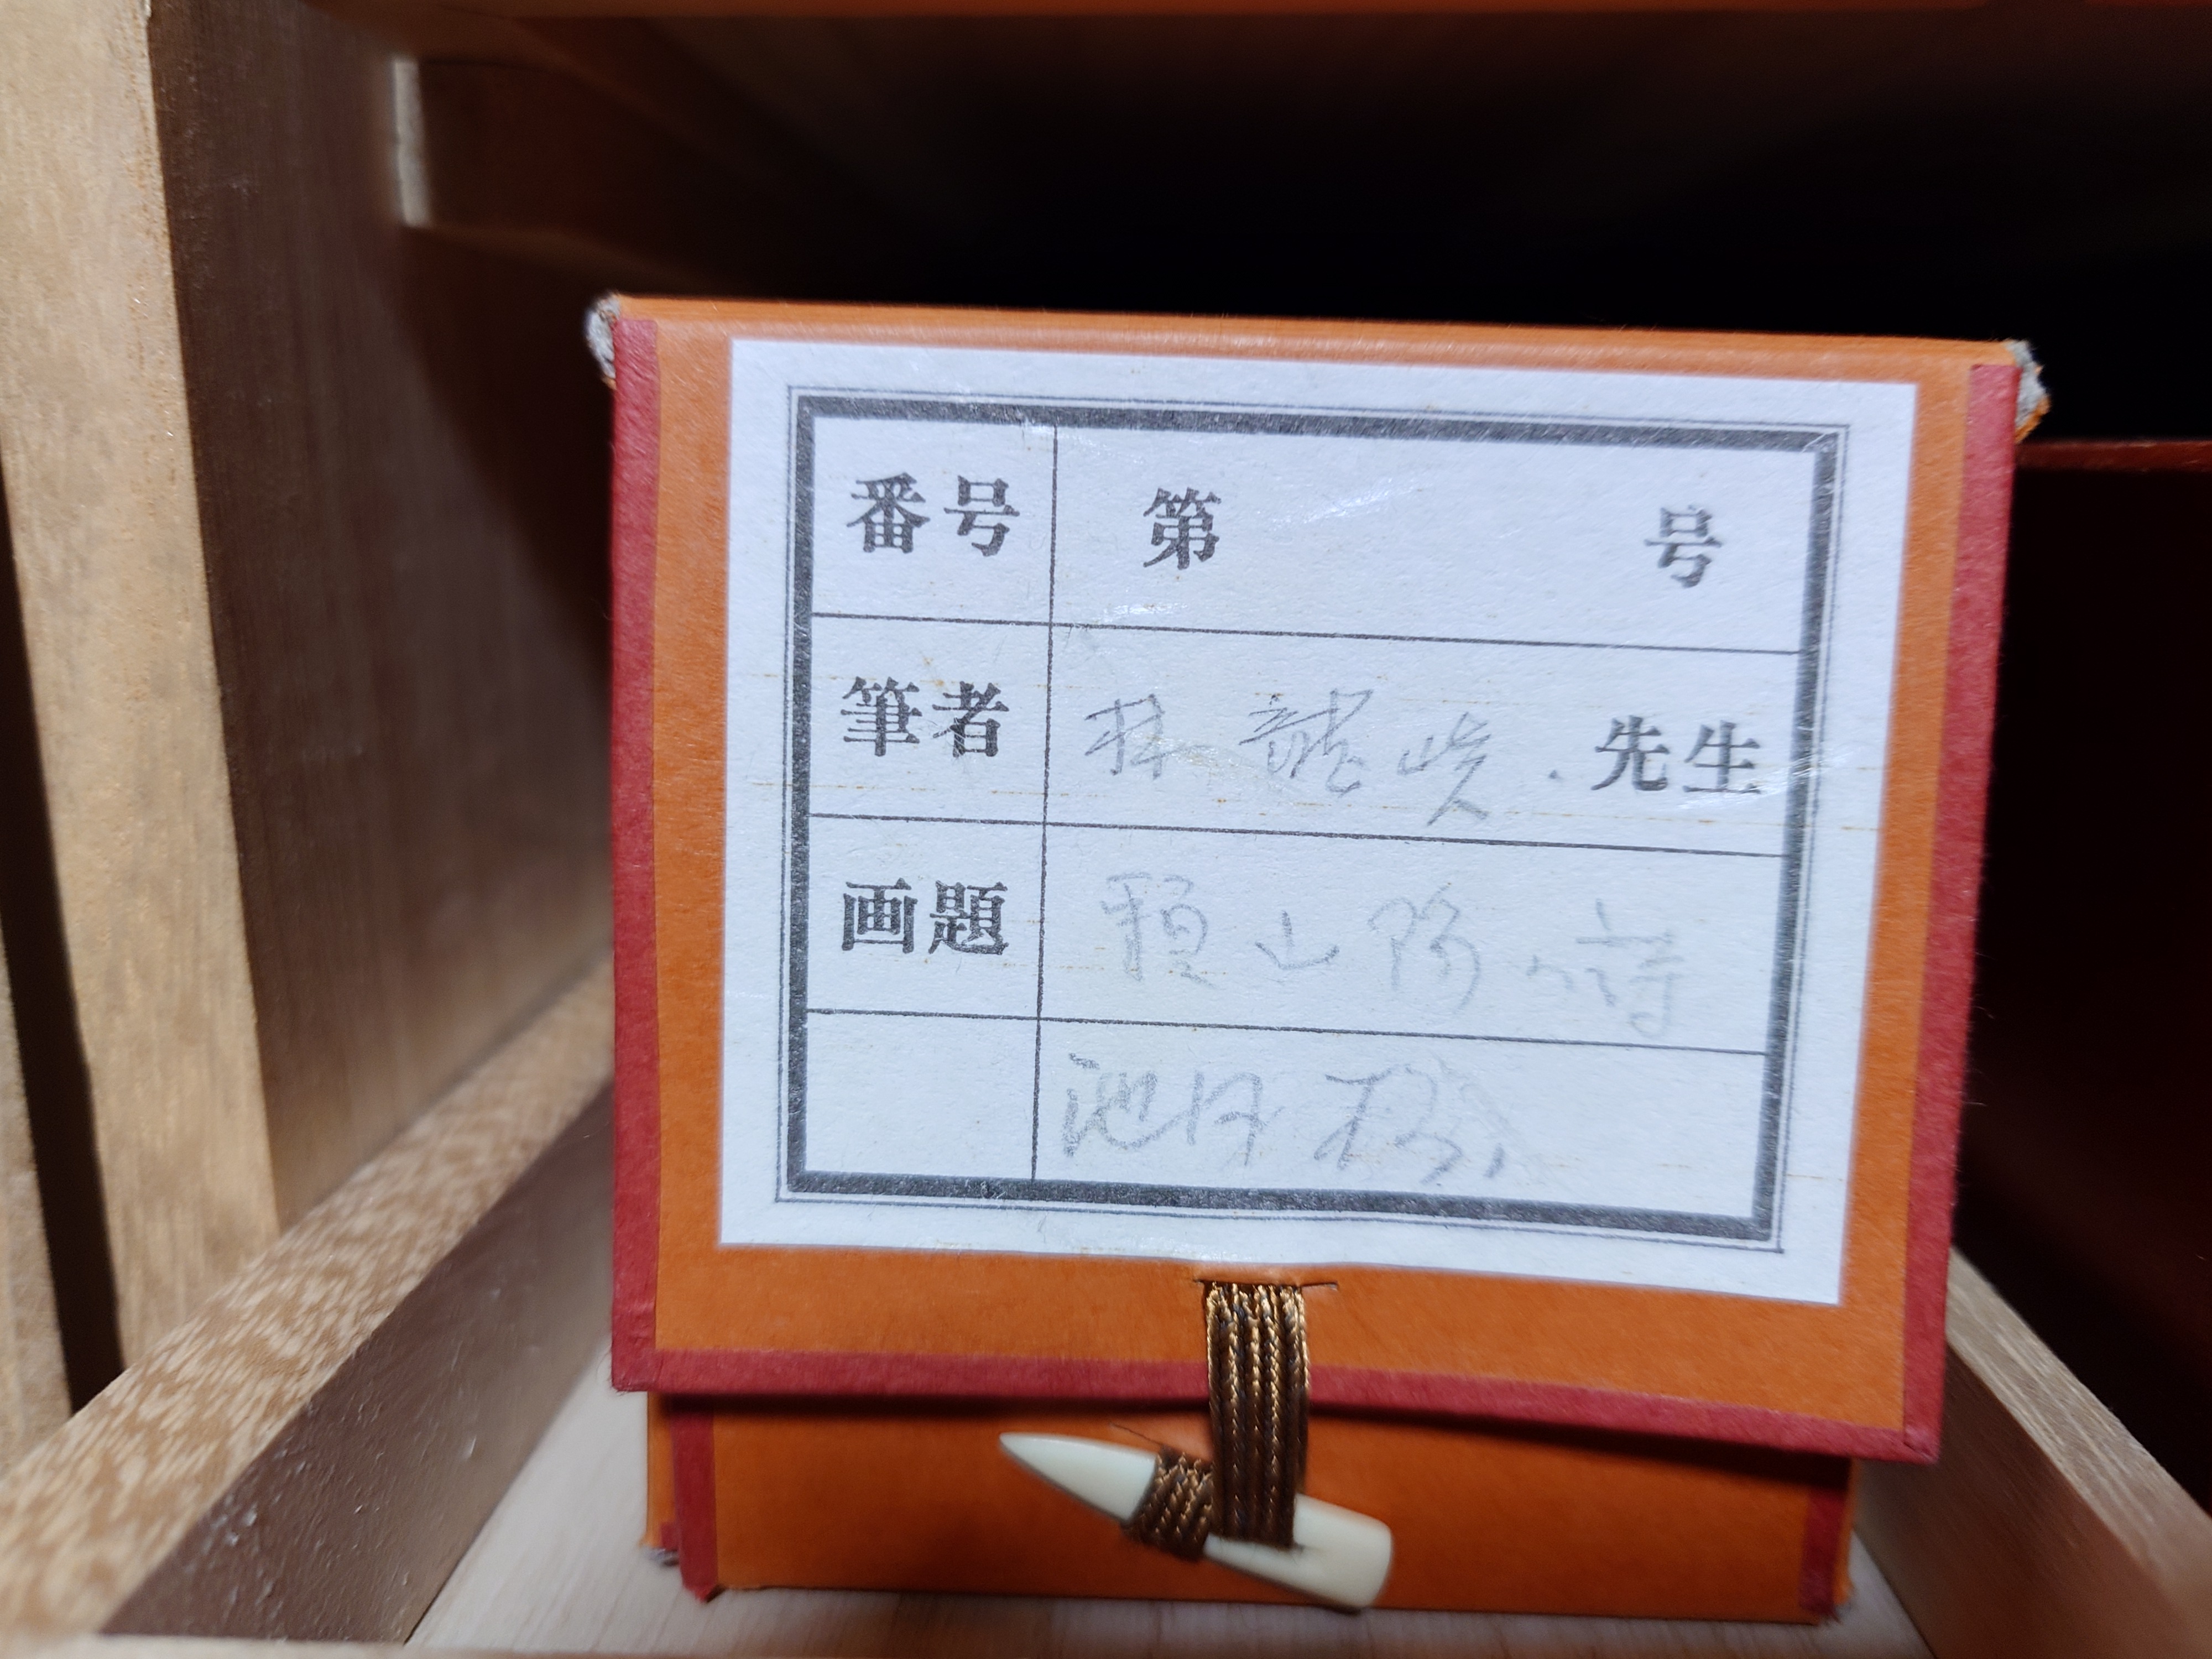 番号 第 号
筆者 林 龍峡 先生
画題 頼山陽の詩